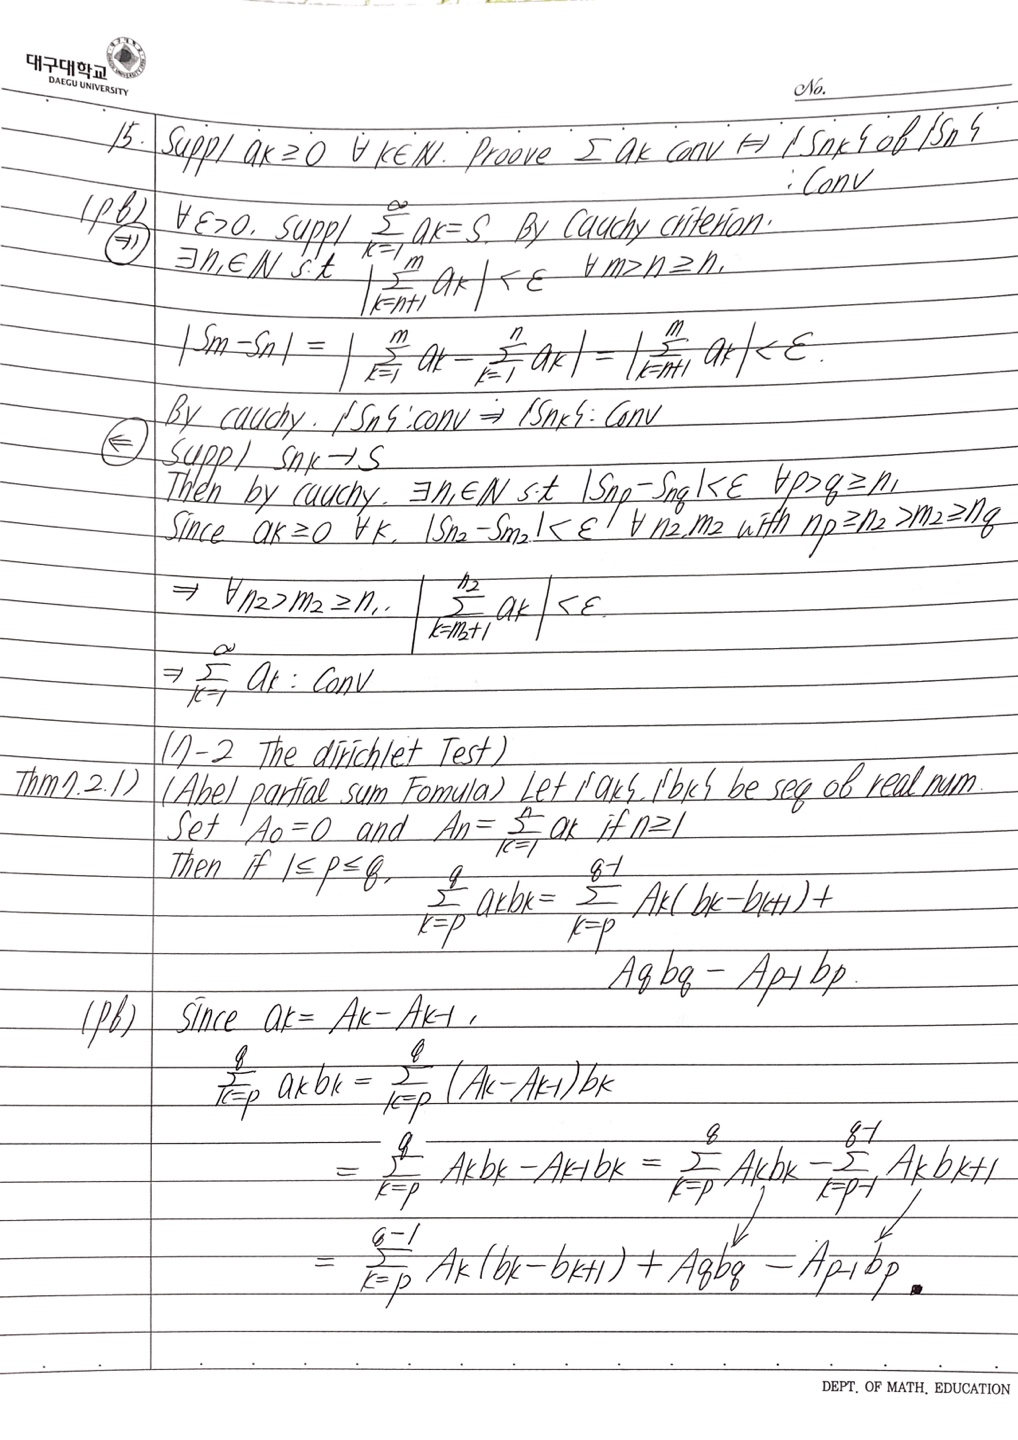 대구대학교
DAEGU UNIVERSITY
No.
15. Supp) ak ≥ 0 ∀ k∈N. Proove Σ ak conv ⇔ {Snk} of {Sn}
: Conv
(pf) ∀ε>0. Supp) Σ_{k=1}^{∞} ak = S. By Cauchy criterion.
(⇒) ∃n₁∈N s.t |Σ_{k=n+1}^{m} ak| < ε ∀m>n≥n₁
|Sm-Sn| = |Σ_{k=1}^{m} ak - Σ_{k=1}^{n} ak| = |Σ_{k=n+1}^{m} ak| < ε.
By cauchy. {Sn}:conv ⇒ {Snk}: Conv
(⇐) Supp) Snk → S
Then by cauchy. ∃n₁∈N s.t |Snp-Snq|<ε ∀p>q≥n₁
Since ak≥0 ∀k, |Sn2-Sm2|<ε ∀ n2,m2 with np≥n2>m2≥nq
⇒ ∀n2>m2≥n₁.. |Σ_{k=m2+1}^{n2} ak| < ε.
⇒ Σ_{k=1}^{∞} ak : Conv
(7-2 The dirichlet Test)
Thm7.2.1) (Abel partial sum Fomula) Let {ak}, {bk} be seq of real num.
Set A0=0 and An = Σ_{k=1}^{n} ak if n≥1
Then if 1≤p≤q, Σ_{k=p}^{q} akbk = Σ_{k=p}^{q-1} Ak(bk-bk+1)+
Aqbq - Ap-1bp.
(pf) Since ak = Ak - Ak-1,
Σ_{k=p}^{q} akbk = Σ_{k=p}^{q} (Ak-Ak-1)bk
= Σ_{k=p}^{q} Akbk - Ak-1bk = Σ_{k=p}^{q} Akbk - Σ_{k=p-1}^{q-1} Akbk+1
= Σ_{k=p}^{q-1} Ak(bk-bk+1) + Aqbq - Ap-1bp.
DEPT. OF MATH. EDUCATION